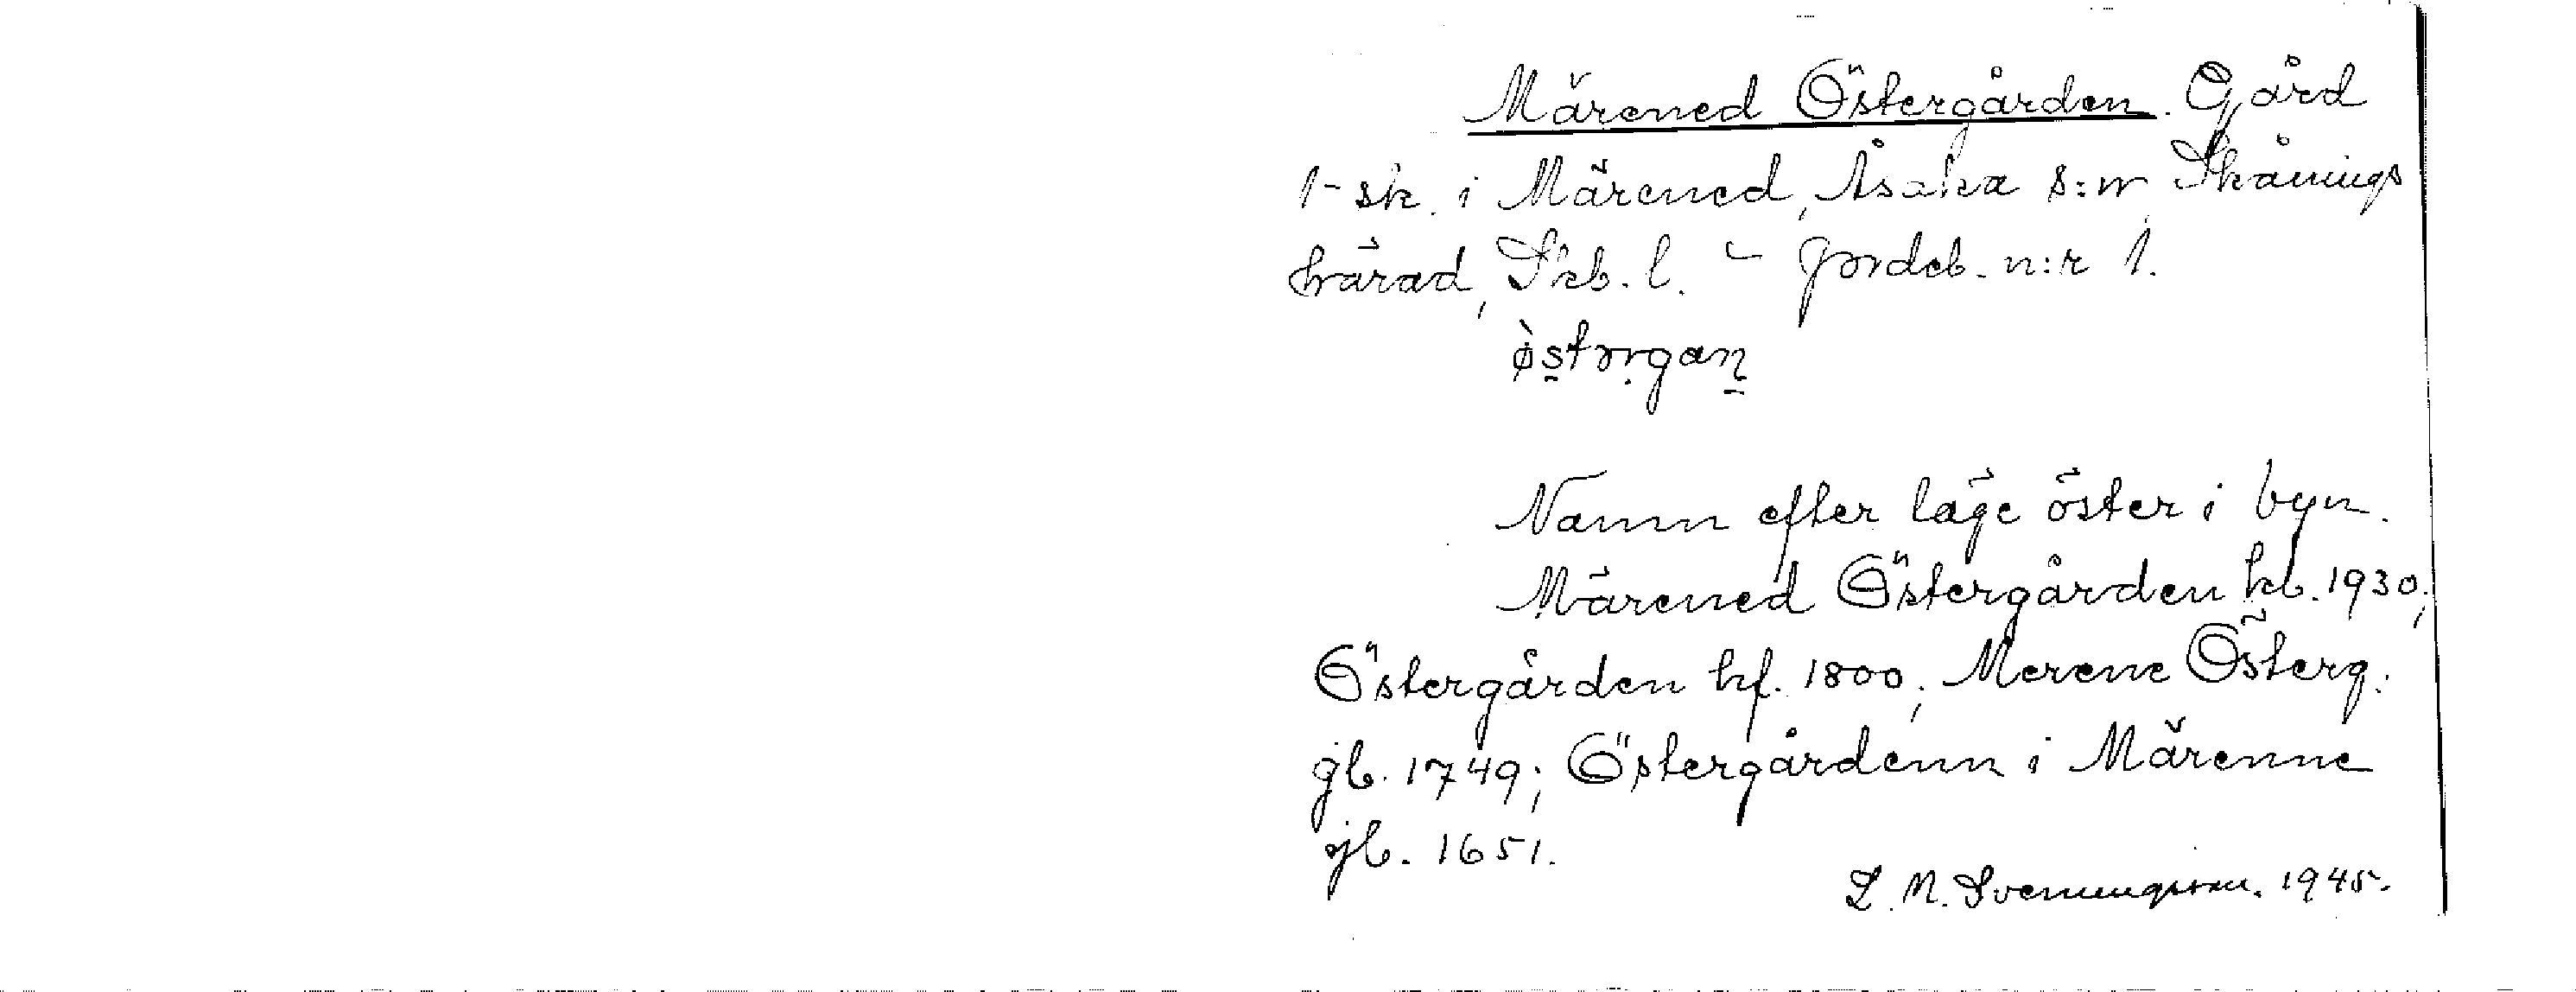 Märened Östergården. Gård
1-sk. i Märened, Åsaka s:n, Skånings
härad, Skb. l. - Jordeb. n:r 1.
Namn efter läge öster i byn.
Märened Östergården kb. 1930;
Östergården hf. 1800; Merene Österg.
gb. 1749; Östergårdenn i Märenne
jb. 1651.
L. M. Svenungsson. 1945.